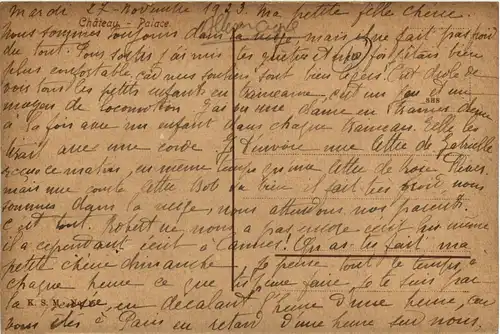 Mardi 27 Novembre 1923. Ma petite fille chérie.
Château - Palace
Nous sommes toujours dans la neige mais il ne fait pas froid
du tout. Pour sortir j'ai mis les guêtres et une fois c'étais bien
plus confortable car mes souliers sont bien légers. C'est drôle de
voir tous les petits enfants en traineaux, c'est un peu un
SHS
moyen de locomotion. J'ai vu une dame en traîner deux
à la fois avec un enfant dans chaque traineau. Elle les
tirait avec une corde. Je t'envoie une lettre de
reçue ce matin, en même temps qu'une lettre de
mais une courte lettre. Bob va bien et fait
sommes dans la neige nous attendons nos parents
c'est tout. Robert ne nous a pas encore écrit lui même
il a cependant écrit à Cannes! Qu'as tu fait ma
petite chérie dimanche. Je pense tout le temps, à
chaque heure ce que tu peux faire je te suis par
la pensée, en décalant l'heure d'une heure, car
vous êtes à Paris en retard d'une heure sur nous.